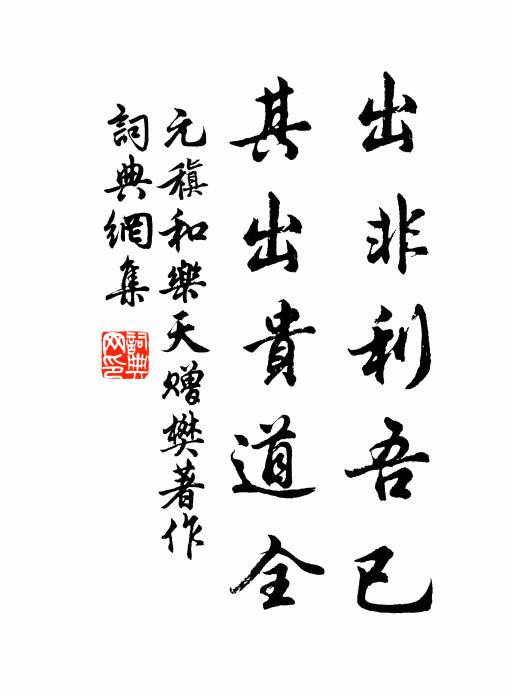 出非利吾已
其出貴道全
元稹和樂天贈樊著作
詞典網集
詞典网印